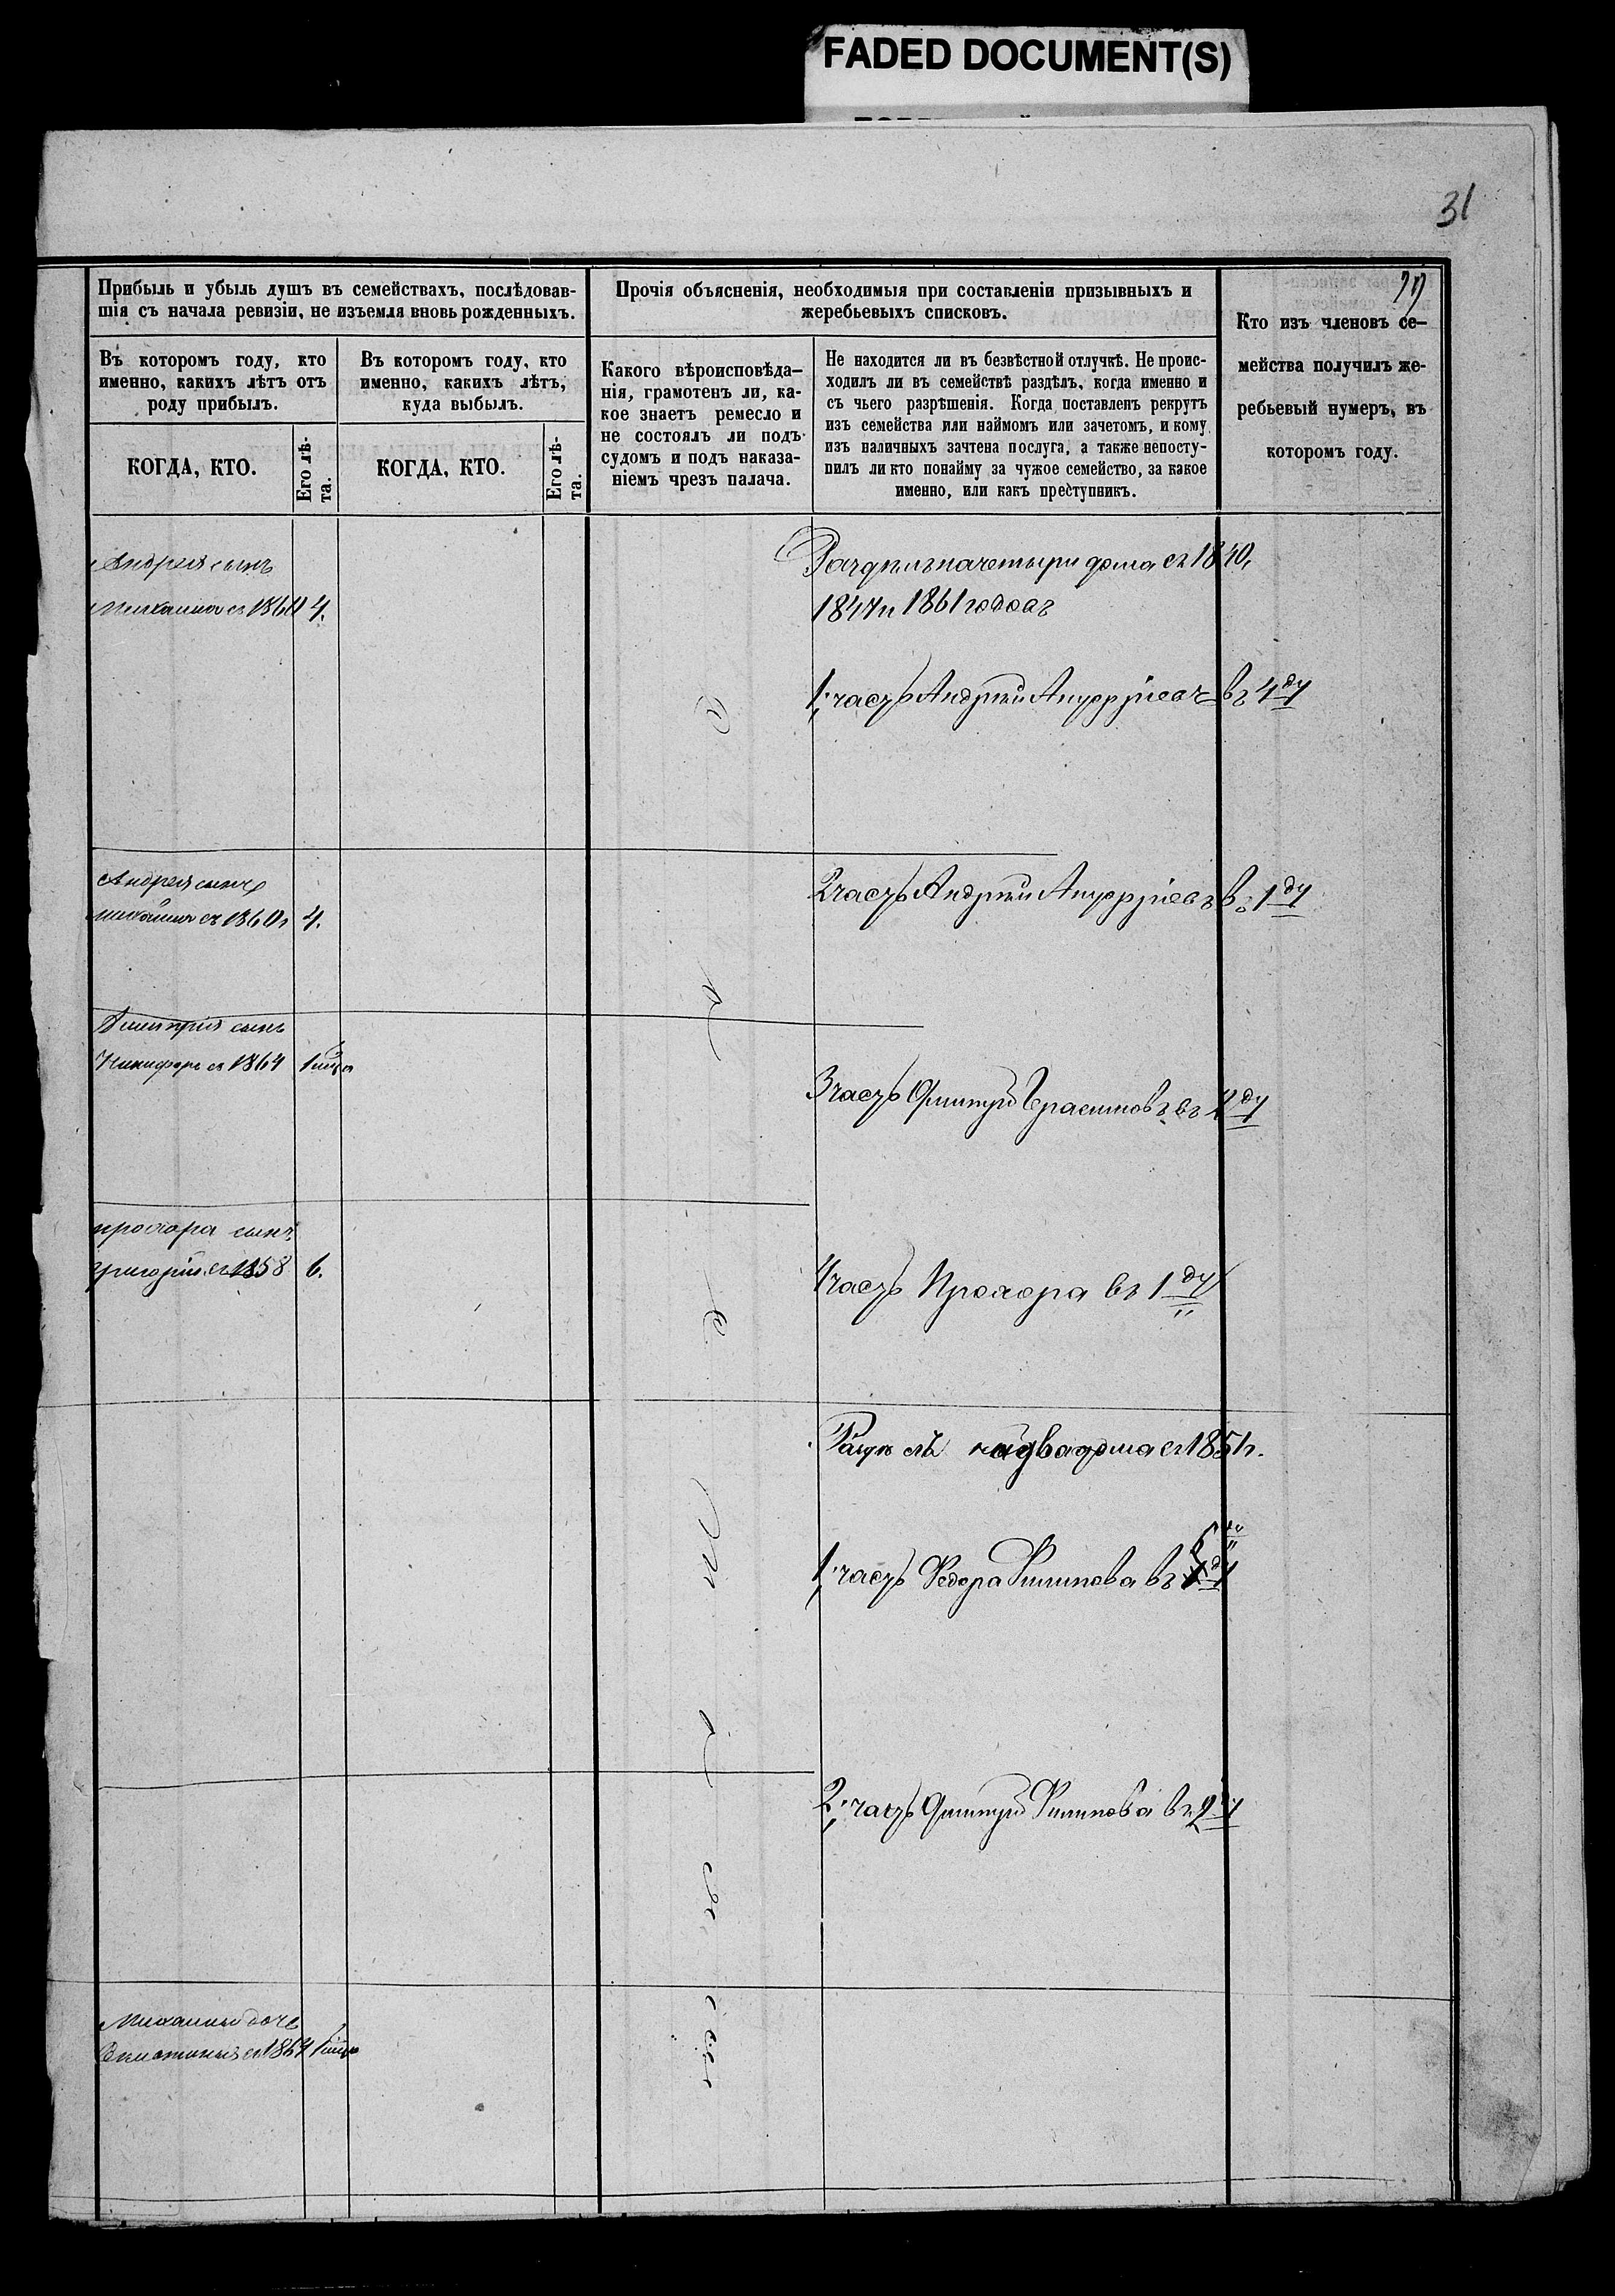 FADED DOCUMENT(S)
31
Прибыль и убыль душъ въ семействахъ, послѣдовав-
шія съ начала ревизіи, не изъемля вновь рожденныхъ.
Въ которомъ году, кто
именно, какихъ лѣтъ отъ
роду прибылъ.
КОГДА, КТО.
Его лѣ-
та.
Въ которомъ году, кто
именно, какихъ лѣтъ,
куда выбылъ.
КОГДА, КТО.
Его лѣ-
та.
Прочія объясненія, необходимыя при составленіи призывныхъ и
жеребьевыхъ списковъ.
Какого вѣроисповѣда-
нія, грамотенъ ли, ка-
кое знаетъ ремесло и
не состоялъ ли подъ
судомъ и подъ наказа-
ніемъ чрезъ палача.
Не находится ли въ безвѣстной отлучкѣ. Не проис-
ходилъ ли въ семействѣ раздѣлъ, когда именно и
съ чьего разрѣшенія. Когда поставленъ рекрутъ
изъ семейства или наймомъ или зачетомъ, и кому
изъ наличныхъ зачтена послуга, а также непосту-
пилъ ли кто понайму за чужое семейство, за какое
именно, или какъ преступникъ.
Кто изъ членовъ се-
мейства получилъ же-
ребьевый нумеръ, въ
которомъ году.
Андрея сынъ
Михаила съ 1860 4.
Раздѣлъ на четыри дома съ 1840,
1847 и 1861 годовъ
1, часть Андрѣй въ 4 ду
Андрея сынъ
михаила съ 1860 4.
2 часть Андрѣй въ 1 ду
Дмитрія сынъ
Никифоръ съ 1864 1
3 часть Дмитрій Герасимовъ въ 2 ду
прохора сынъ
григорій съ 1858 6.
4 часть Прохора въ 1 ду
Раздѣлъ на два дома съ 1851 г.
1, часть Федора Филипова въ
2, часть Дмитрій Филипова въ 2 ду
Михаила дочь
съ 1864 1